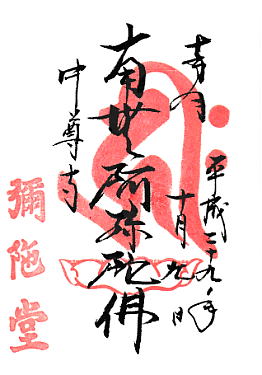 奉拝
平成二十九年
十月九日
南無阿弥陀佛
中尊寺
彌陀堂